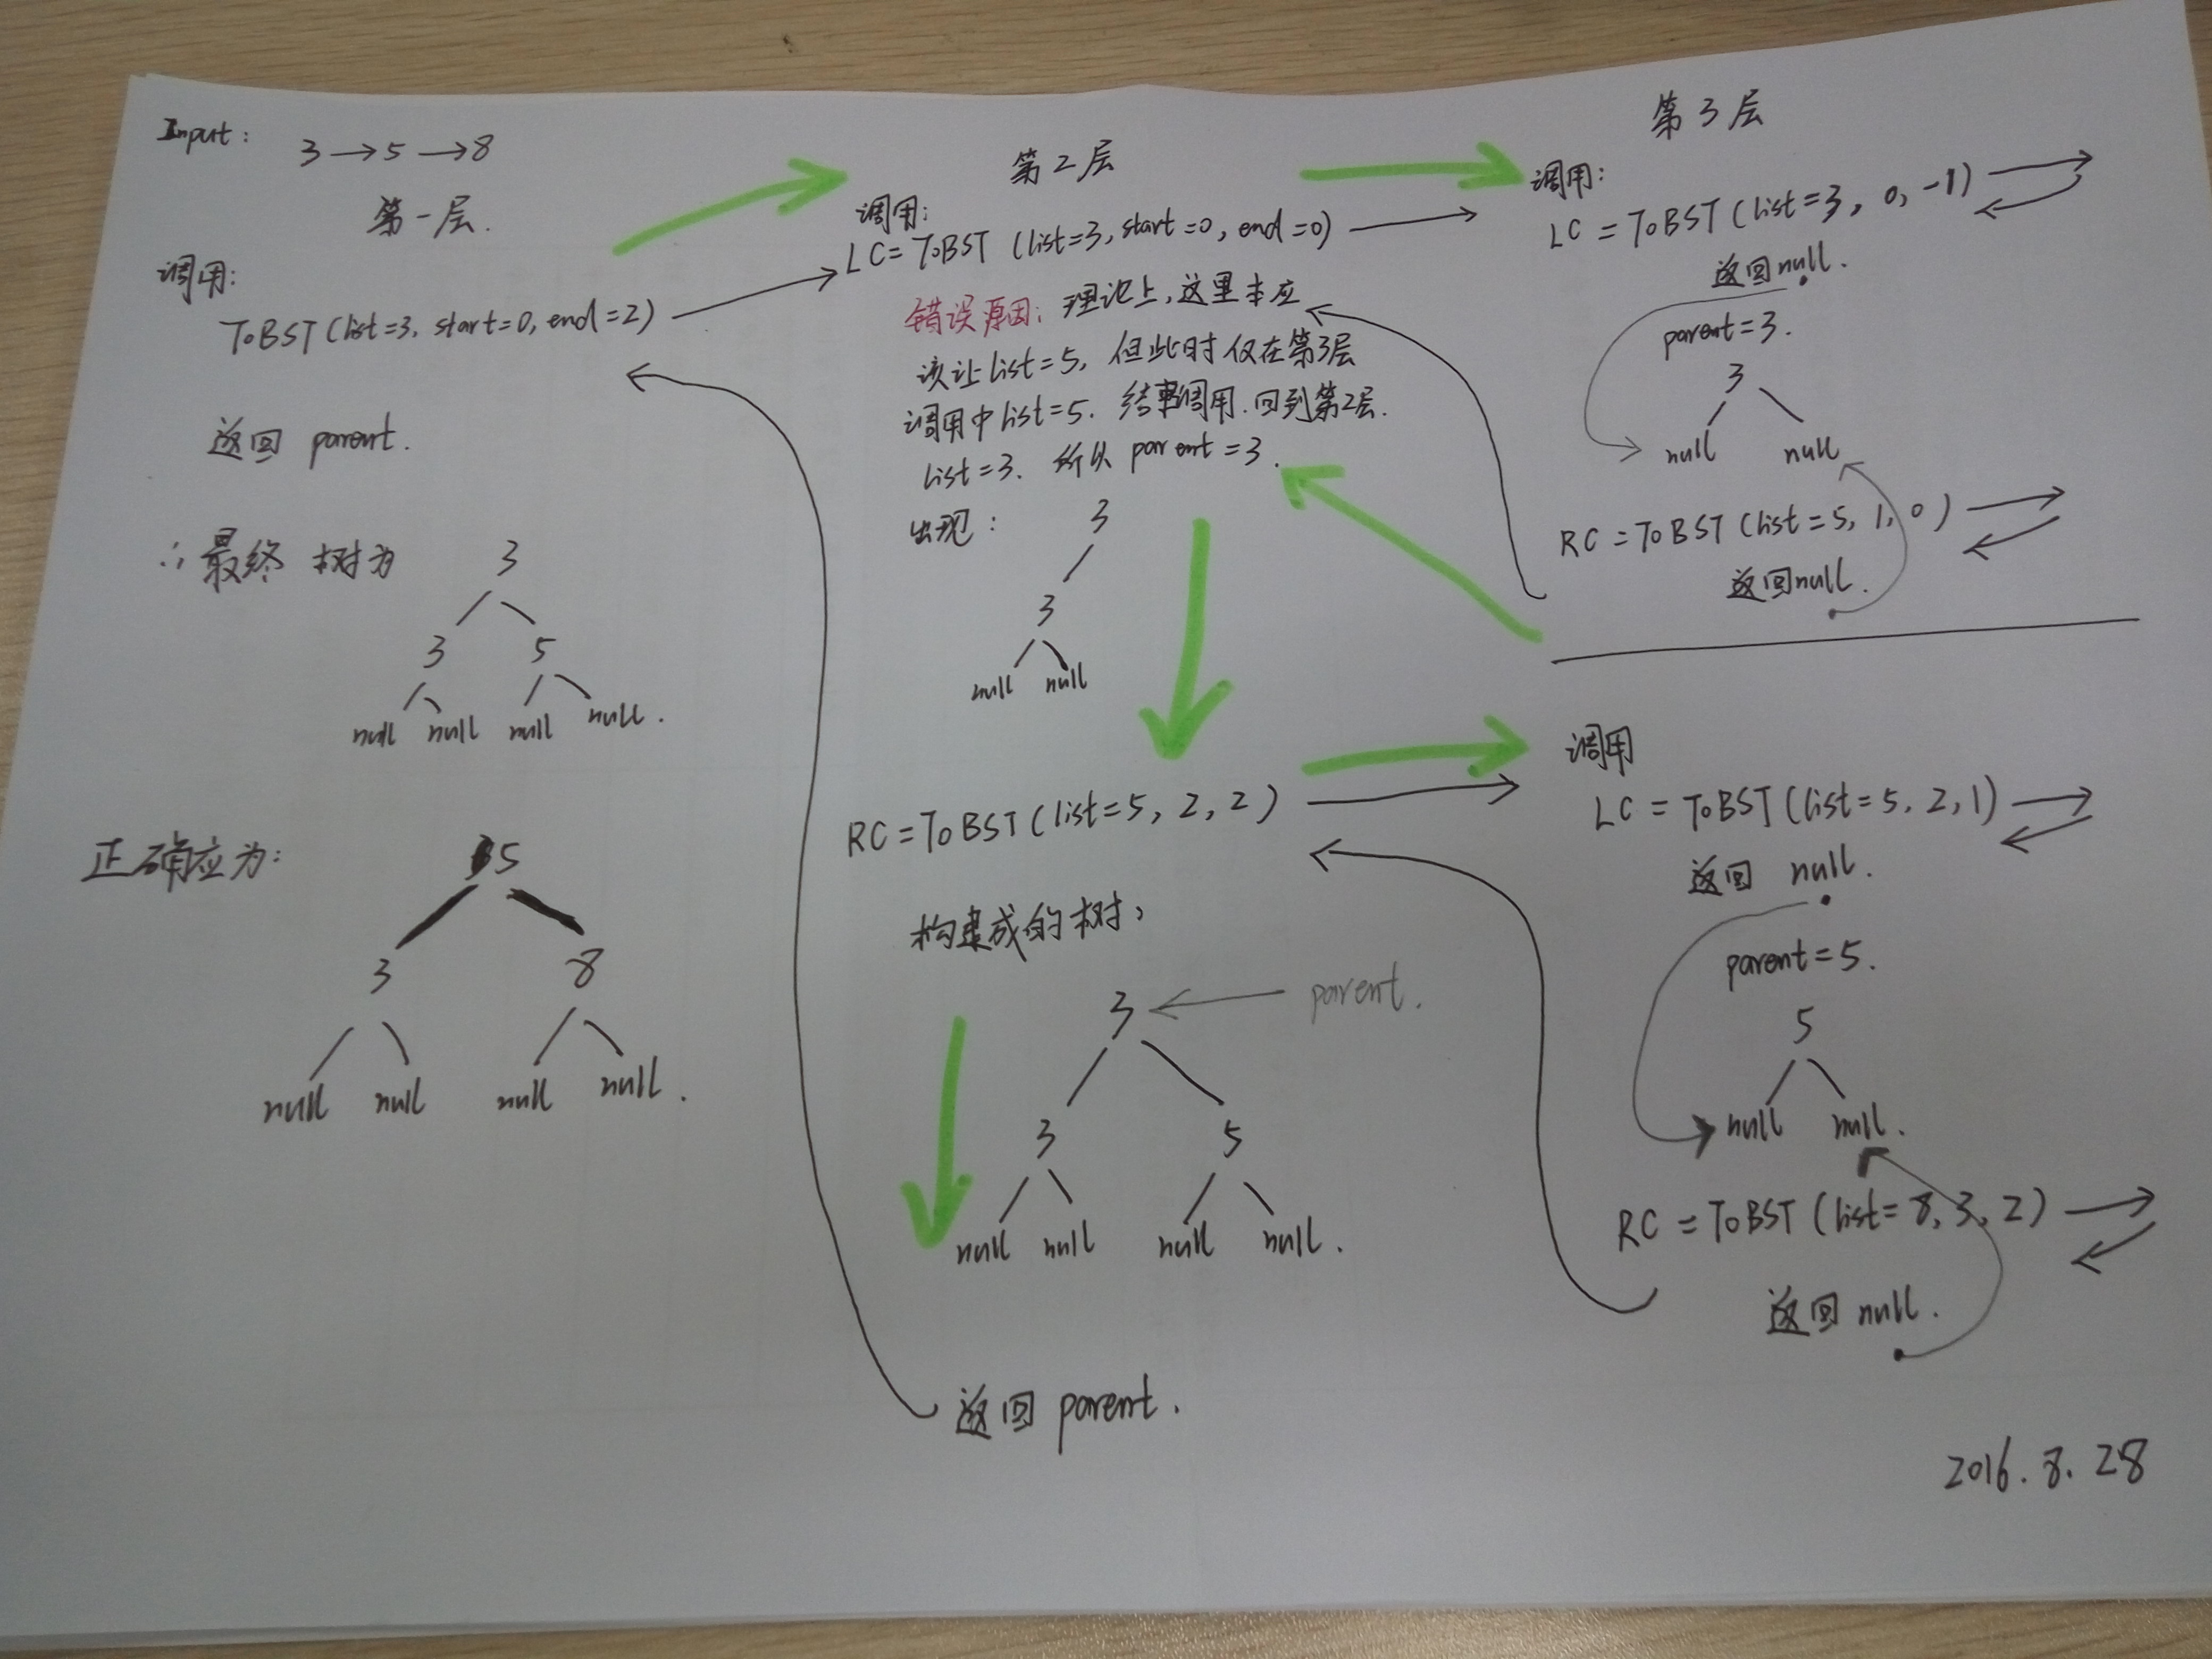 Input: 3→5→8
第一层.
调用:
ToBST(list=3, start=0, end=2)
返回 parent.
∴最终 树为
3
3 5
null null null null.
正确应为:
5
3 8
null null null null.
第2层
调用:
LC=ToBST (list=3, start=0, end=0)
错误原因: 理论上,这里本应
该让list=5, 但此时仅在第3层
调用中list=5. 结束调用.回到第2层.
list=3. 所以 parent=3.
出现:
3
3
null null
RC=ToBST(list=5, 2, 2)
构建成的树,
3 ← parent.
3 5
null null null null.
返回 parent.
第3层
调用:
LC=ToBST(list=3, 0, -1)
返回null.
parent=3.
3
null null
RC=ToBST(list=5, 1, 0)
返回null.
调用
LC=ToBST(list=5, 2, 1)
返回 null.
parent=5.
5
null null.
RC=ToBST(list=8, 3, 2)
返回 null.
2016.8.28